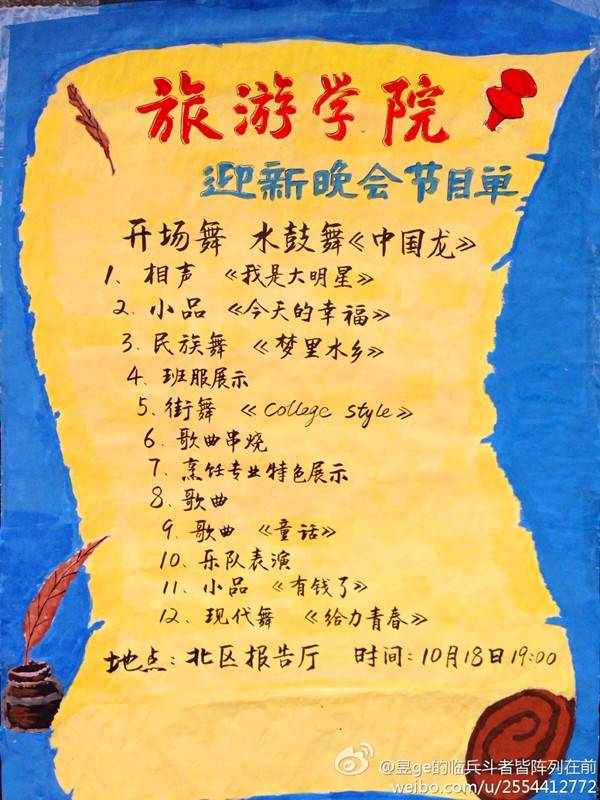 旅游学院
迎新晚会节目单
开场舞 水鼓舞《中国龙》
1、相声 《我是大明星》
2、小品 《今天的幸福》
3、民族舞 《梦里水乡》
4、班服展示
5、街舞 《College Style》
6、歌曲串烧
7、烹饪专业特色展示
8、歌曲
9、歌曲 《童话》
10、乐队表演
11、小品 《有钱了》
12、现代舞 《给力青春》
地点:北区报告厅 时间:10月18日19:00
@昱ge的临兵斗者皆阵列在前
weibo.com/u/2554412772